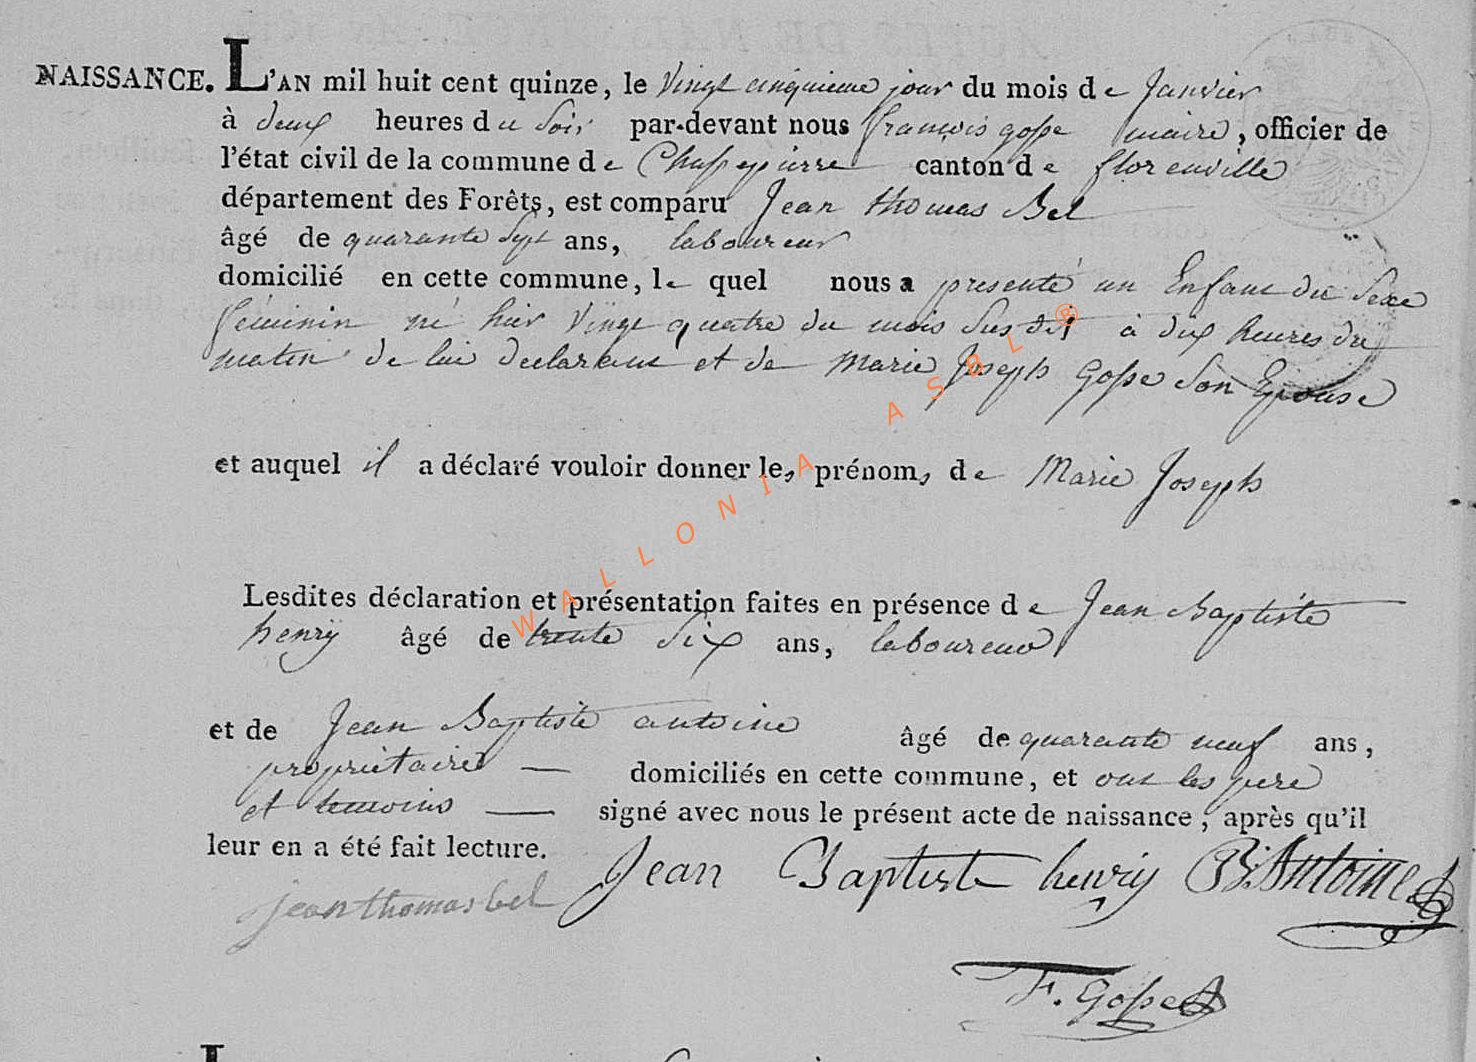 NAISSANCE. L'AN mil huit cent quinze, le vingt cinquieme jour du mois de Janvier
à deux heures du soir par-devant nous françois gosse maire, officier de
l'état civil de la commune de Chassepierre canton de florenville
département des Forêts, est comparu Jean thomas Bel
âgé de quarante sept ans, laboureur
domicilié en cette commune, le quel nous a presenté un Enfant du Sexe
féminin né hier vingt quatre du mois susdit à dix heures du
matin de lui declarant et de Marie Joseph Gosse son Epouse
et auquel il a déclaré vouloir donner les prénoms de Marie Joseph
Lesdites déclaration et présentation faites en présence de Jean Baptiste
henrÿ âgé de trente six ans, laboureur
et de Jean Baptiste antoine âgé de quarante neuf ans,
propriétaire — domiciliés en cette commune, et ont les pere
et temoins — signé avec nous le présent acte de naissance, après qu'il
leur en a été fait lecture.
Jean Baptiste henrÿ B. Antoine
jean thomas bel
F. Gosse
WALLONIA ASBL®